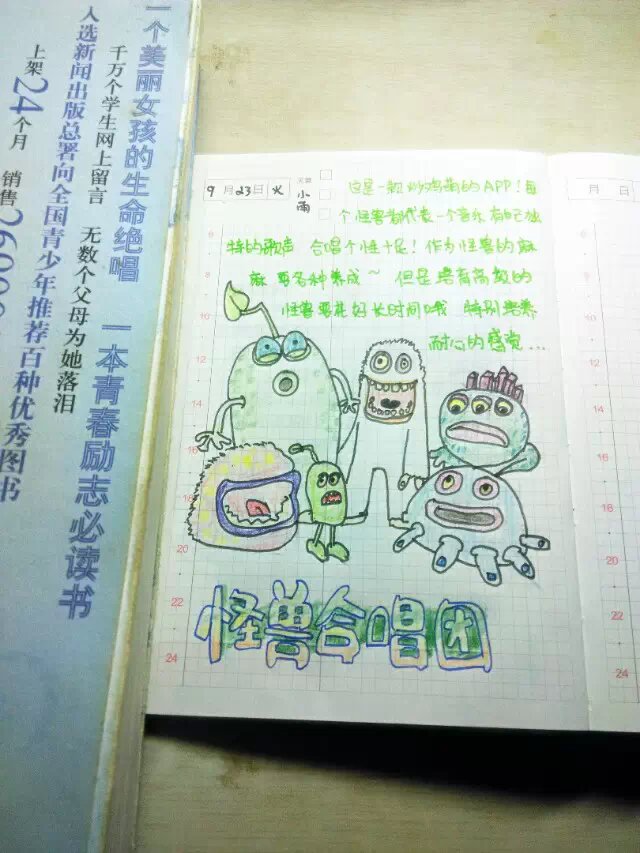 一个美丽女孩的生命绝唱 一本青春励志必读书
千万个学生网上留言 无数个父母为她落泪
入选新闻出版总署向全国青少年推荐百种优秀图书
上架24个月 销售2600
9月23日火
天气
小雨
这是一款炒鸡萌的APP!每
个怪兽都代表一个音乐 有自己独
特的歌声 合唱个怪十足!作为怪兽的麻
麻 要各种养成~ 但是培育高级的
怪兽要花好长时间哦 特别培养
耐心的感觉...
怪兽合唱团
8
10
12
14
16
18
20
22
24
月 日
8
10
12
14
16
18
20
22
24